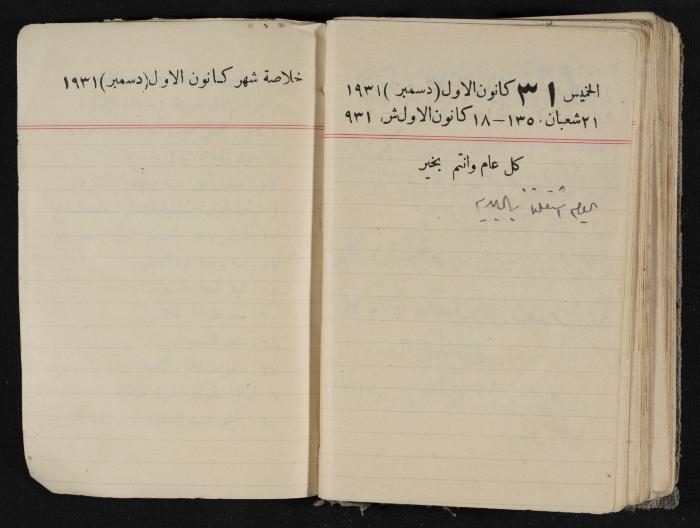 الخميس ٣١ كانون الاول (دسمبر) ١٩٣١
٢١ شعبان ١٣٥٠ – ١٨ كانون الاول ش. ٩٣١
كل عام وانتم بخير
اليوم اشتغلنا بالبلدية
خلاصة شهر كانون الاول (دسمبر) ١٩٣١